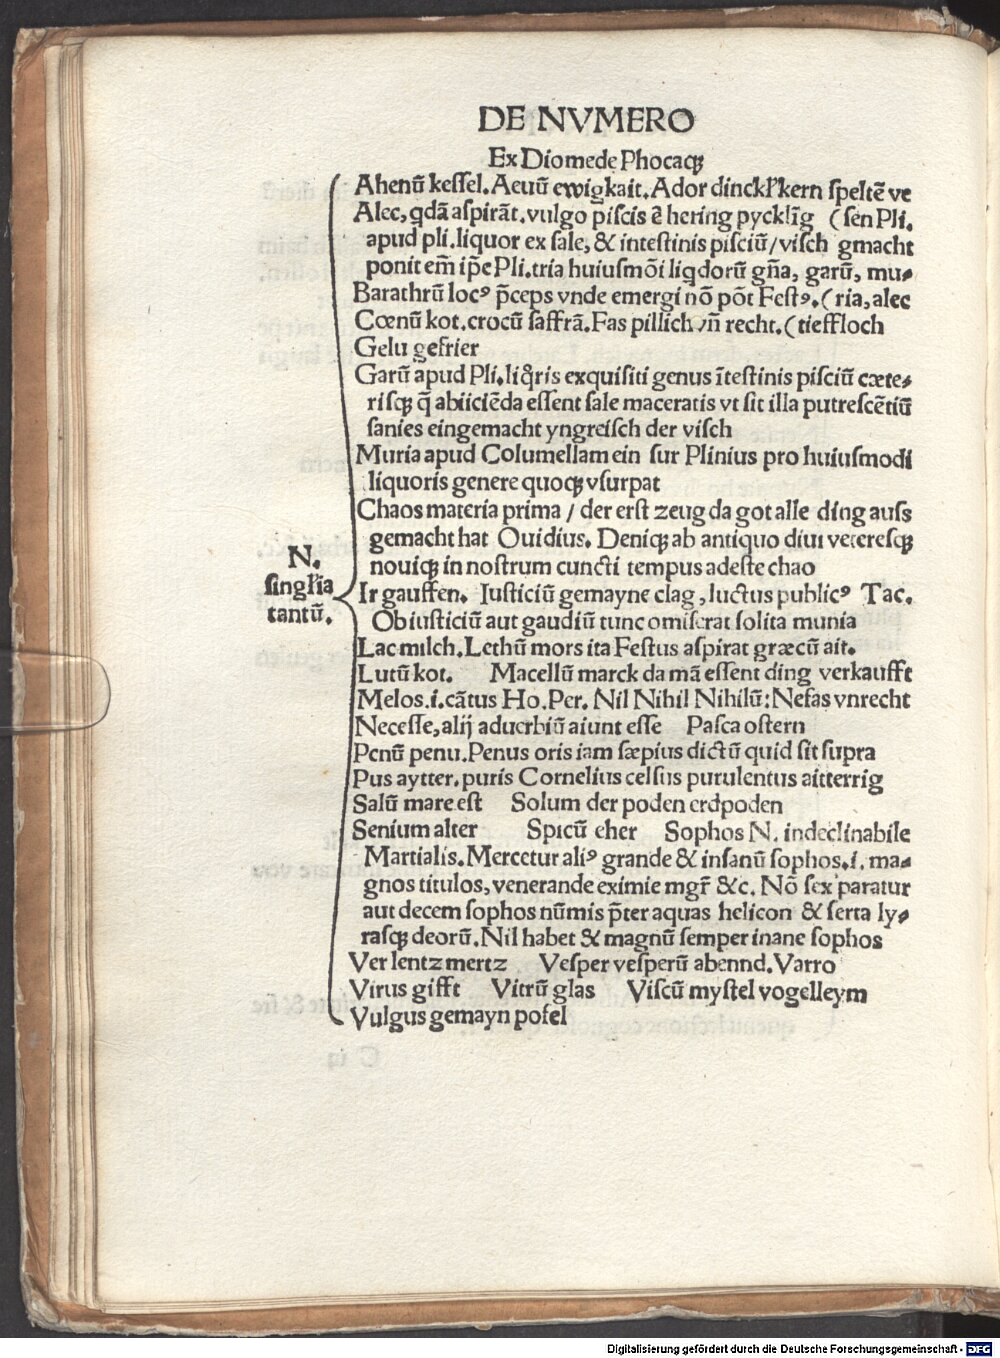 DE NVMERO
Ex Diomede Phocaqꝫ
Ahenū kessel. Aeuū ewigkait. Ador dinckl'kern speltē ve
Alec, qdā aspirāt. vulgo piscis ē hering pycklīg (sen Pli.
apud pli. liquor ex sale, & intestinis pisciū/ visch gmacht
ponit em̄ ip̄e Pli. tria huiusmōi liqdorū gn̄a, garū, mu⸗
Barathrū locꝰ p̄ceps vnde emergi nō pōt Festꝰ. (ria, alec
Cœnū kot. crocū saffrā. Fas pillich vn̄ recht. (tieffloch
Gelu gefrier
Garū apud Pli. liq̄ris exquisiti genus ītestinis pisciū cæte⸗
risqꝫ q̄ abiiciēda essent sale maceratis vt sit illa putrescētiū
sanies eingemacht yngreisch der visch
Muria apud Columellam ein sur Plinius pro huiusmodi
liquoris genere quoqꝫ vsurpat
Chaos materia prima / der erst zeug da got alle ding auss
gemacht hat Ouidius. Deniqꝫ ab antiquo diui veteresqꝫ
nouiqꝫ in nostrum cuncti tempus adeste chao
N.
singl'ia
tantū.
Ir gauffen. Iusticiū gemayne clag, luctus publicꝰ Tac.
Ob iusticiū aut gaudiū tunc omiserat solita munia
Lac milch. Lethū mors ita Festus aspirat græcū ait.
Lutū kot. Macellū marck da mā essent ding verkaufft
Melos .i. cātus Ho. Per. Nil Nihil Nihilū: Nefas vnrecht
Necesse, alij aduerbiū aiunt esse Pasca ostern
Penū penu. Penus oris iam sæpius dictū quid sit supra
Pus aytter. puris Cornelius celsus purulentus aitterrig
Salū mare est Solum der poden erdpoden
Senium alter Spicū eher Sophos N. indeclinabile
Martialis. Mercetur aliꝰ grande & insanū sophos .i. ma⸗
gnos titulos, venerande eximie mgr̄ &c. Nō sex paratur
aut decem sophos nūmis p̄ter aquas helicon & serta ly⸗
rasqꝫ deorū. Nil habet & magnū semper inane sophos
Ver lentz mertz Vesper vesperū abennd. Varro
Virus gifft Vitrū glas Viscū mystel vogelleym
Vulgus gemayn pofel
Digitalisierung gefördert durch die Deutsche Forschungsgemeinschaft - DFG